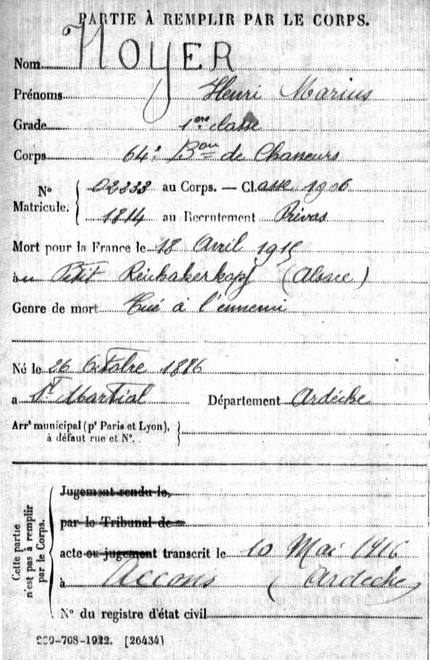 PARTIE À REMPLIR PAR LE CORPS.
Nom NOYER
Prénoms Henri Marius
Grade 1ère classe
Corps 64e Bon de Chasseurs
No Matricule. 02333 au Corps. — Classe 1906
1814 au Recrutement Privas
Mort pour la France le 18 Avril 1915
au Petit Reichakerkopf (Alsace)
Genre de mort Tué à l'ennemi
Né le 26 Octobre 1886
a St Martial Département Ardèche
Arrt municipal (pr Paris et Lyon), à défaut rue et No.
Cette partie n'est pas à remplir par le Corps.
Jugement rendu le,
par le Tribunal de
acte ou jugement transcrit le 10 Mai 1916
à Accons (Ardèche)
No du registre d'état civil
-708-1922. [26434]